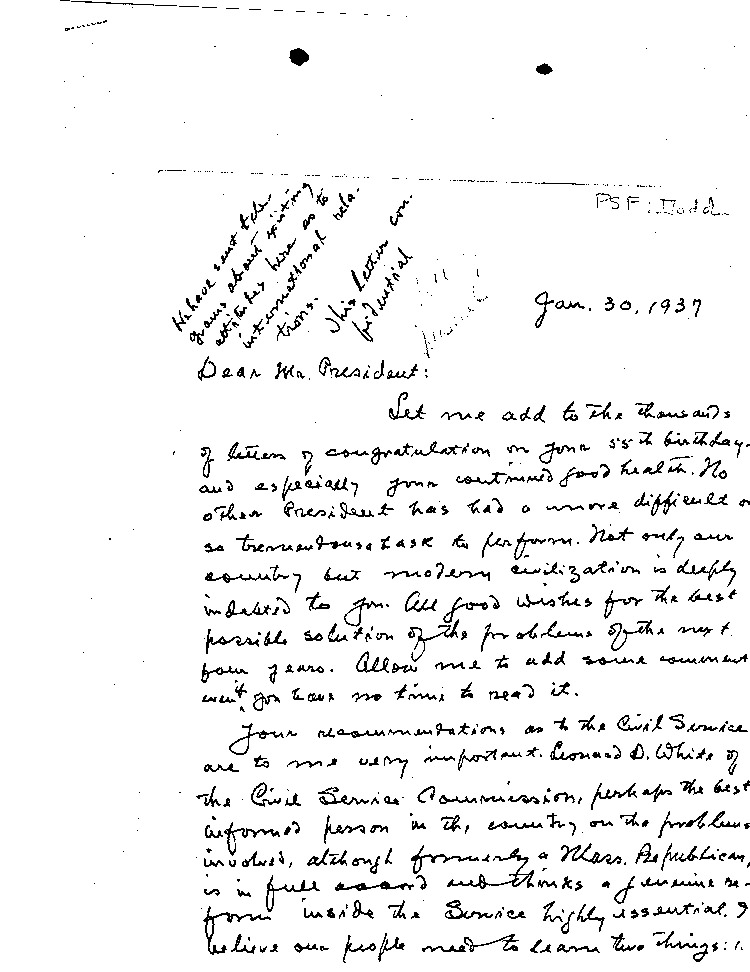 PSF: Dodd
We have sent tele
grams about existing
attitudes here as to
international rela-
tions.
This letter con-
fidential
Jan. 30, 1937
Dear Mr. President:
Let me add to the thousands
of letters of congratulation on your 55th birthday-
and especially your continued good health. No
other President has had a more difficult or
so tremendous a task to perform. Not only our
country but modern civilization is deeply
indebted to you. All good wishes for the best
possible solution of the problems of the next
four years. Allow me to add some comment
even if you have no time to read it.
Your recommendations as to the Civil Service
are to me very important. Leonard D. White of
the Civil Service Commission, perhaps the best
informed person in the country on the problems
involved, although formerly a Mass. Republican,
is in full accord and thinks a genuine re-
form inside the Service highly essential. I
believe our people need to learn two things: 1.